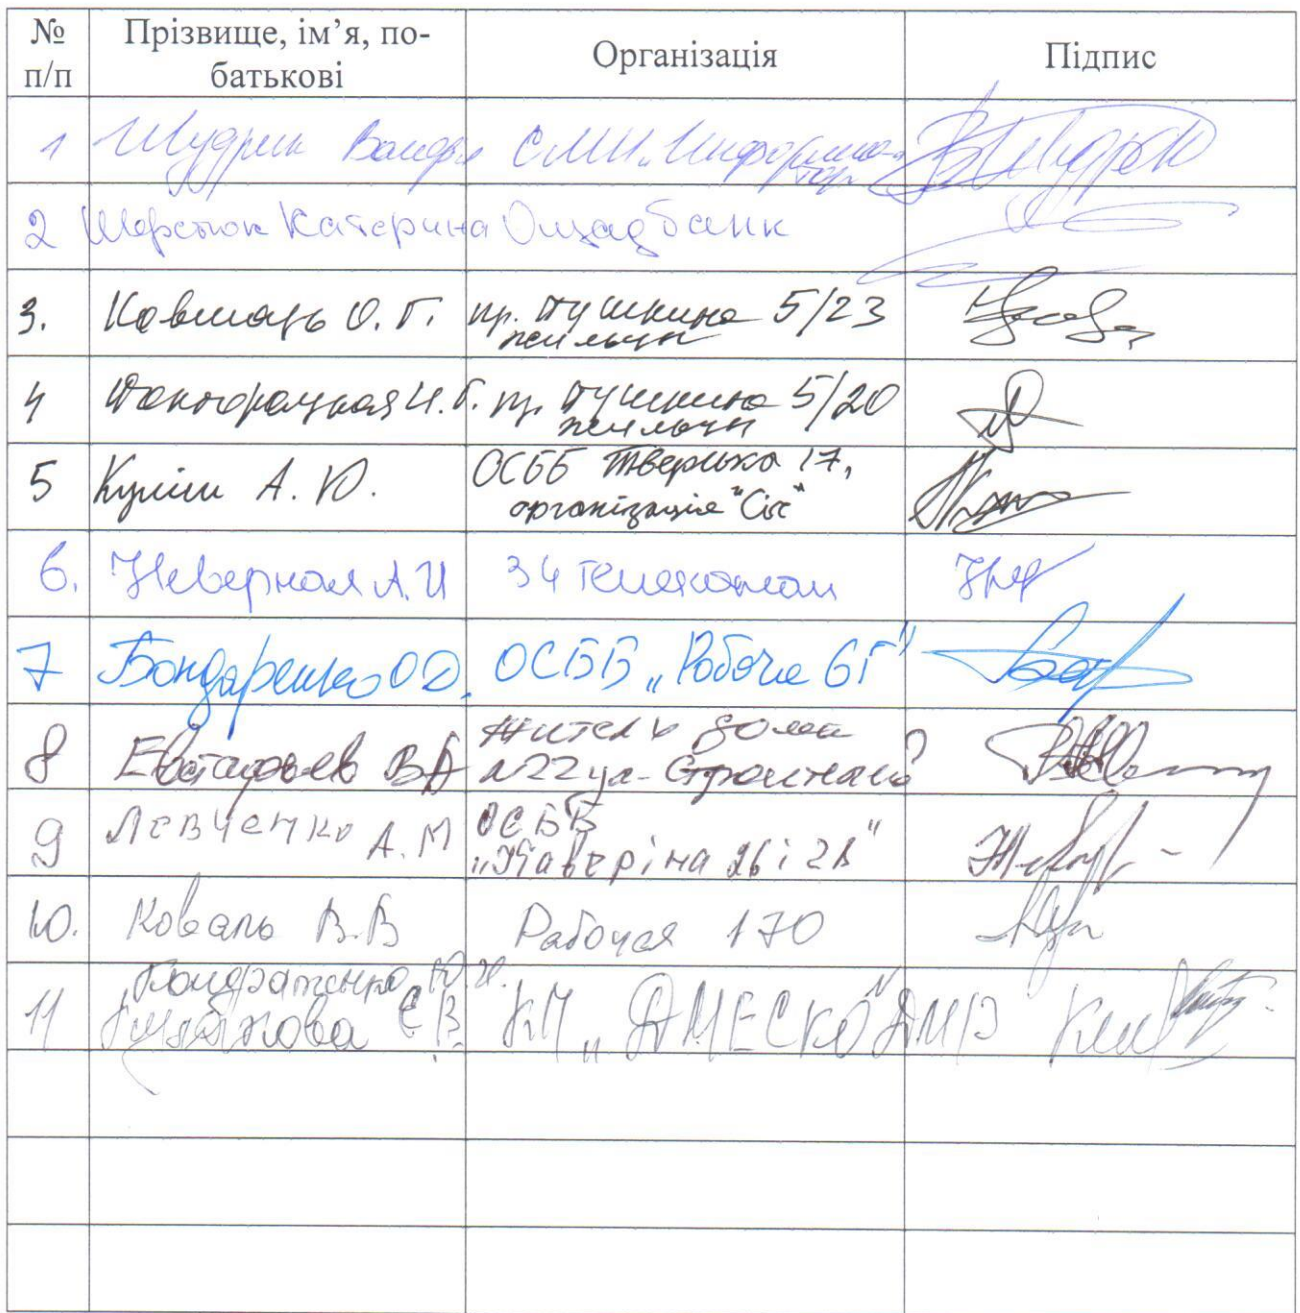 № п/п Прізвище, ім’я, по-батькові Організація Підпис
1 Шудрик Ванда СМИ. Информатор
2 Шерстюк Катерина Ощадбанк
3. О. Г. пр. Пушкина 5/23
жильцы
4 И. Г. пр. Пушкина 5/20
жильцы
5 Куліш А. Ю. ОСББ Тверська 17,
організація "Січ"
6. Неверная А. И 34 телеканал
7 Бондаренко О Д. ОСББ „Робоча 6Г"
8 Евстафьев ВА житель дома
№22 ул.
9 Левченко А. М ОСББ
„Гавріна 26 і 28"
10. Коваль В. В Рабочая 170
Кондратенко Ю. И.
11 Є В. КП „ДМЕСКО" ДМР